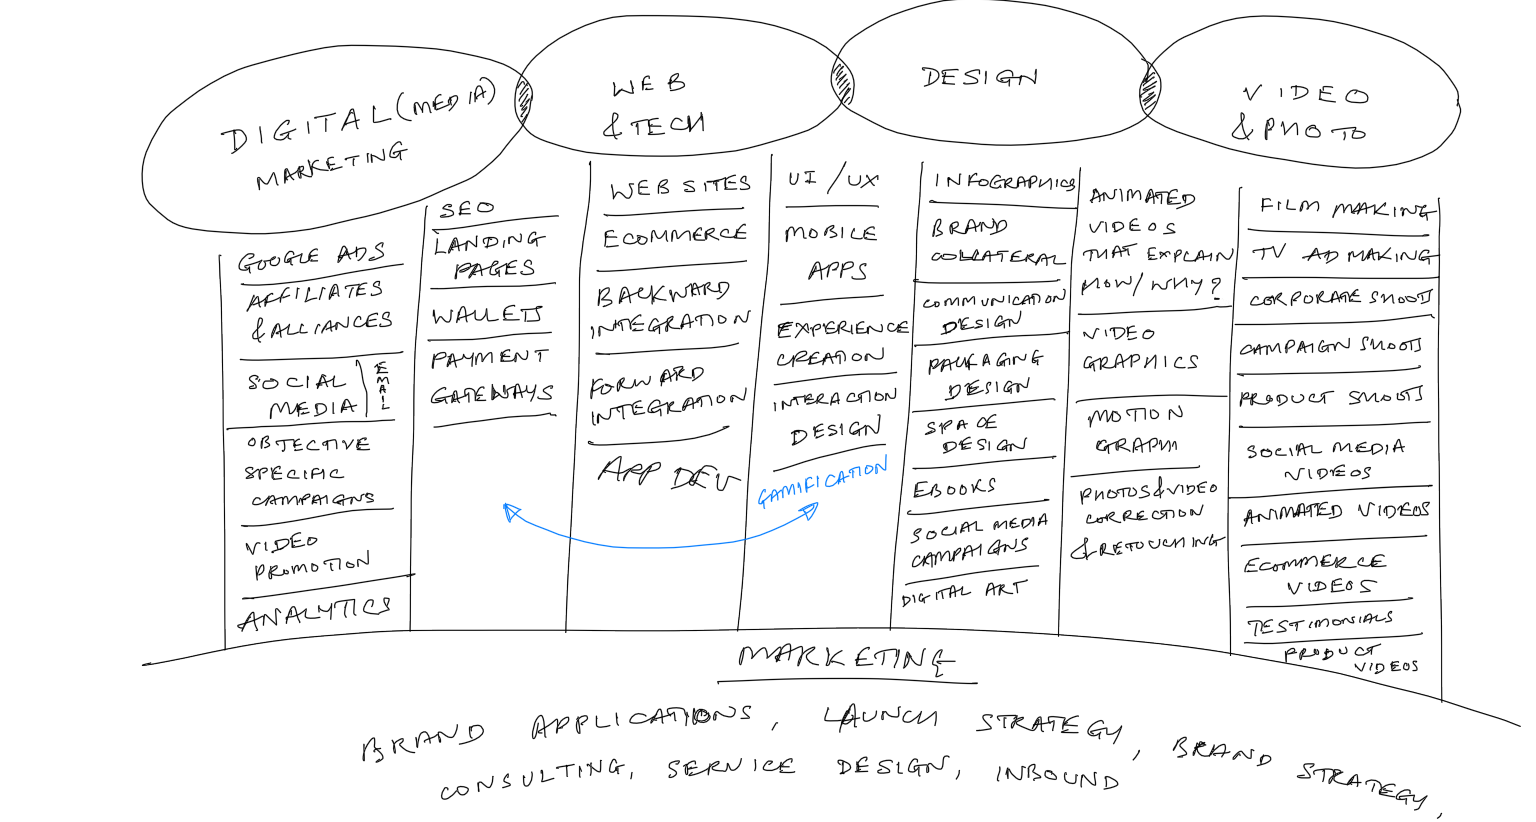 DIGITAL (MEDIA)
MARKETING
WEB
& TECH
DESIGN
VIDEO
& PHOTO
GOOGLE ADS
AFFILIATES
& ALLIANCES
SOCIAL
MEDIA
EMAIL
OBJECTIVE
SPECIFIC
CAMPAIGNS
VIDEO
PROMOTION
ANALYTICS
SEO
LANDING
PAGES
WALLETS
PAYMENT
GATEWAYS
WEB SITES
ECOMMERCE
BACKWARD
INTEGRATION
FORWARD
INTEGRATION
APP DEV
UI / UX
MOBILE
APPS
EXPERIENCE
CREATION
INTERACTION
DESIGN
GAMIFICATION
INFOGRAPHICS
BRAND
COLLATERAL
COMMUNICATION
DESIGN
PACKAGING
DESIGN
SPACE
DESIGN
EBOOKS
SOCIAL MEDIA
CAMPAIGNS
DIGITAL ART
ANIMATED
VIDEOS
THAT EXPLAIN
HOW/WHY?
VIDEO
GRAPHICS
MOTION
GRAPH
PHOTOS & VIDEO
CORRECTION
& RETOUCHING
FILM MAKING
TV AD MAKING
CORPORATE SHOOTS
CAMPAIGN SHOOTS
PRODUCT SHOOTS
SOCIAL MEDIA
VIDEOS
ANIMATED VIDEOS
ECOMMERCE
VIDEOS
TESTIMONIALS
PRODUCT
VIDEOS
MARKETING
BRAND APPLICATIONS, LAUNCH STRATEGY, BRAND STRATEGY,
CONSULTING, SERVICE DESIGN, INBOUND